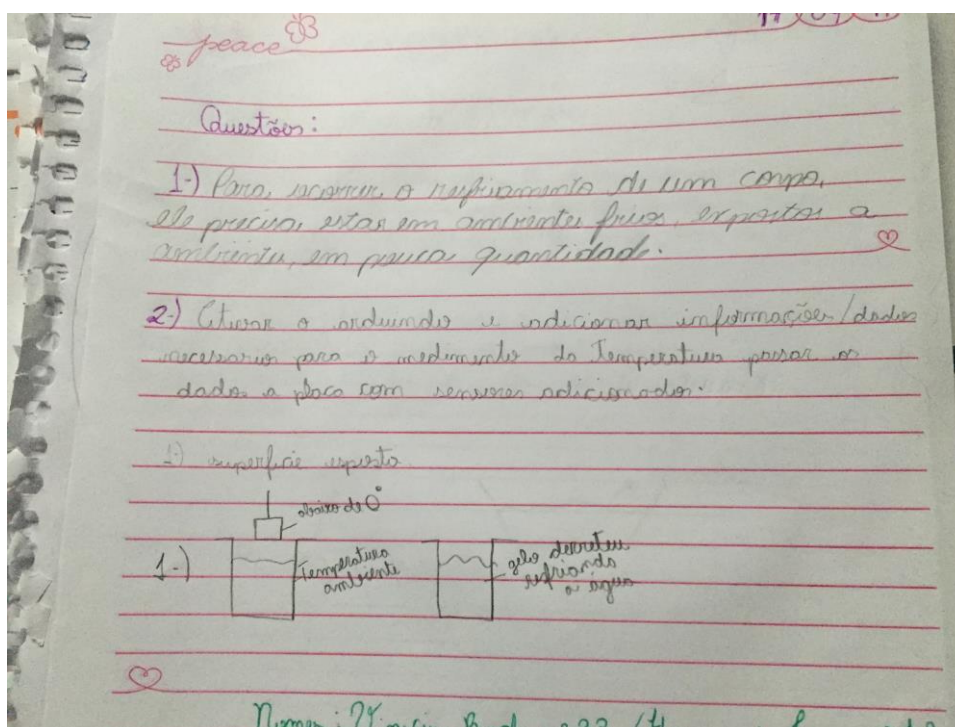 peace
Questões:
1-) Para ocorrer o resfriamento de um corpo,
ele precisa, estar em ambientes frios, expostos a
ambientes, em pouca quantidade.
2-) Ativar o arduindo e adicionar informações/dados
necessarios para o medimento da Temperatura passar os
dados a placa com sensores adicionados.
1-) superficie exposta
abaixo de 0°
1-)
Temperatura
ambiente
gelo derreteu
resfriando
a água